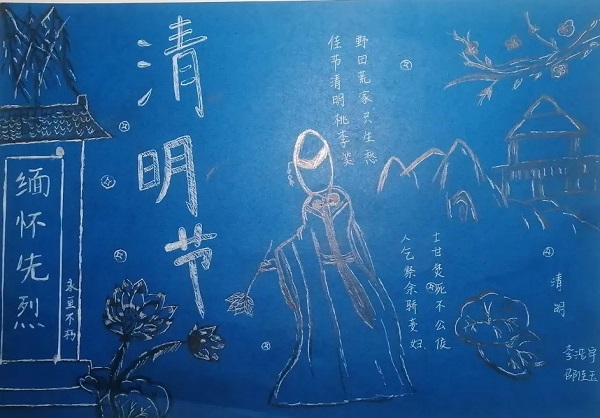 清明节
缅怀先烈
永垂不朽
佳节清明桃李笑
野田荒冢只生愁
人乞祭余骄妾妇
士甘焚死不公侯
清明